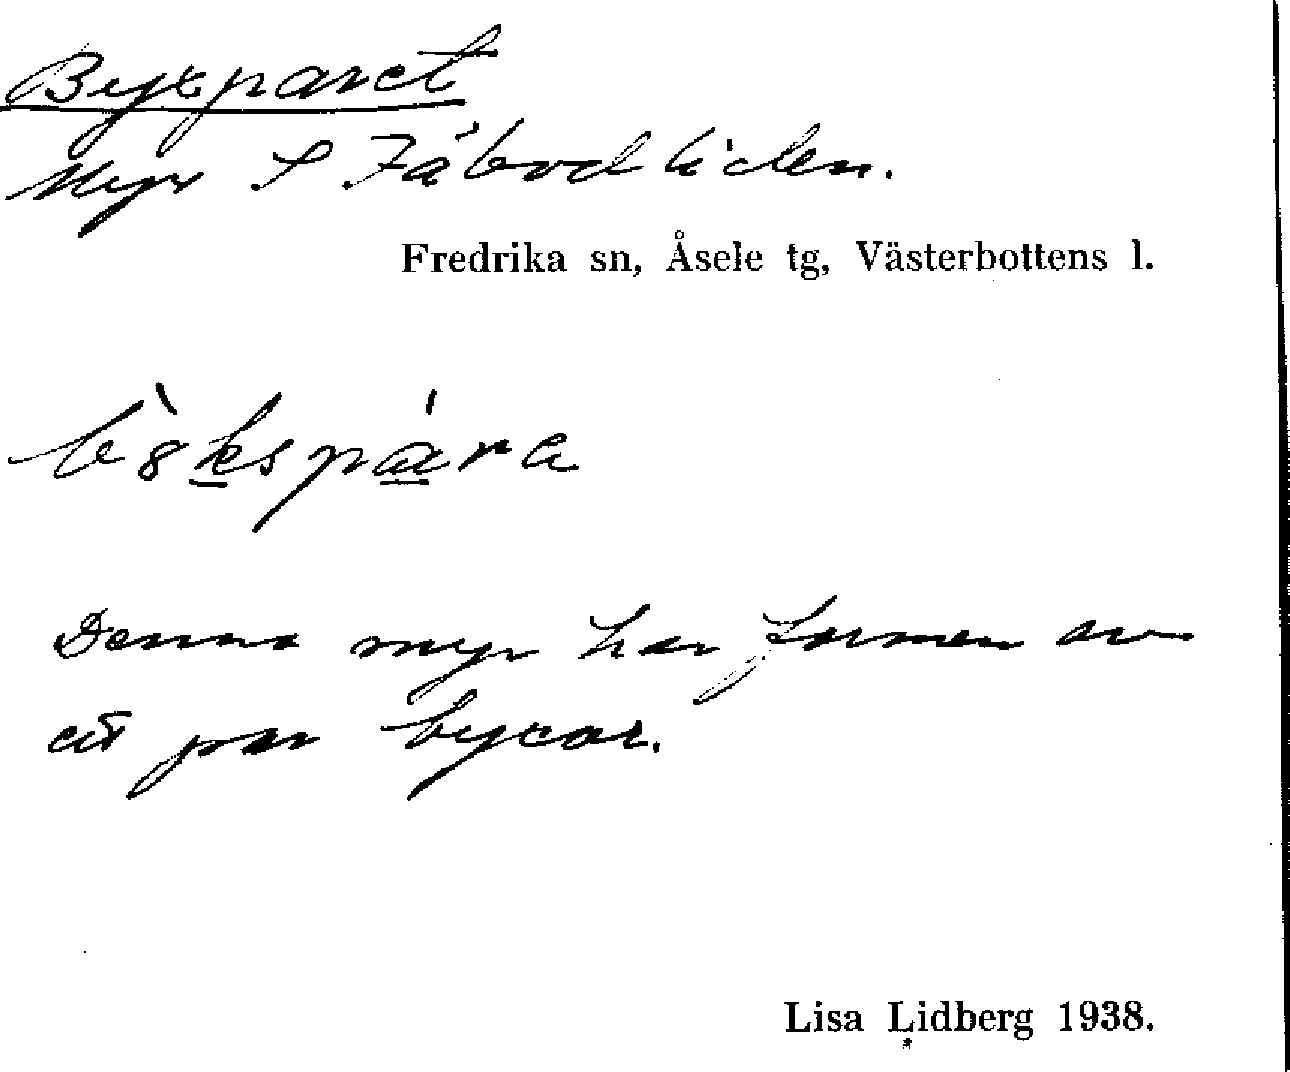 Byxparet
Myr S Fäbodliden.
Fredrika sn, Åsele tg, Västerbottens l.
Denna myr har formen av
ett par byxor.
Lisa Lidberg 1938.